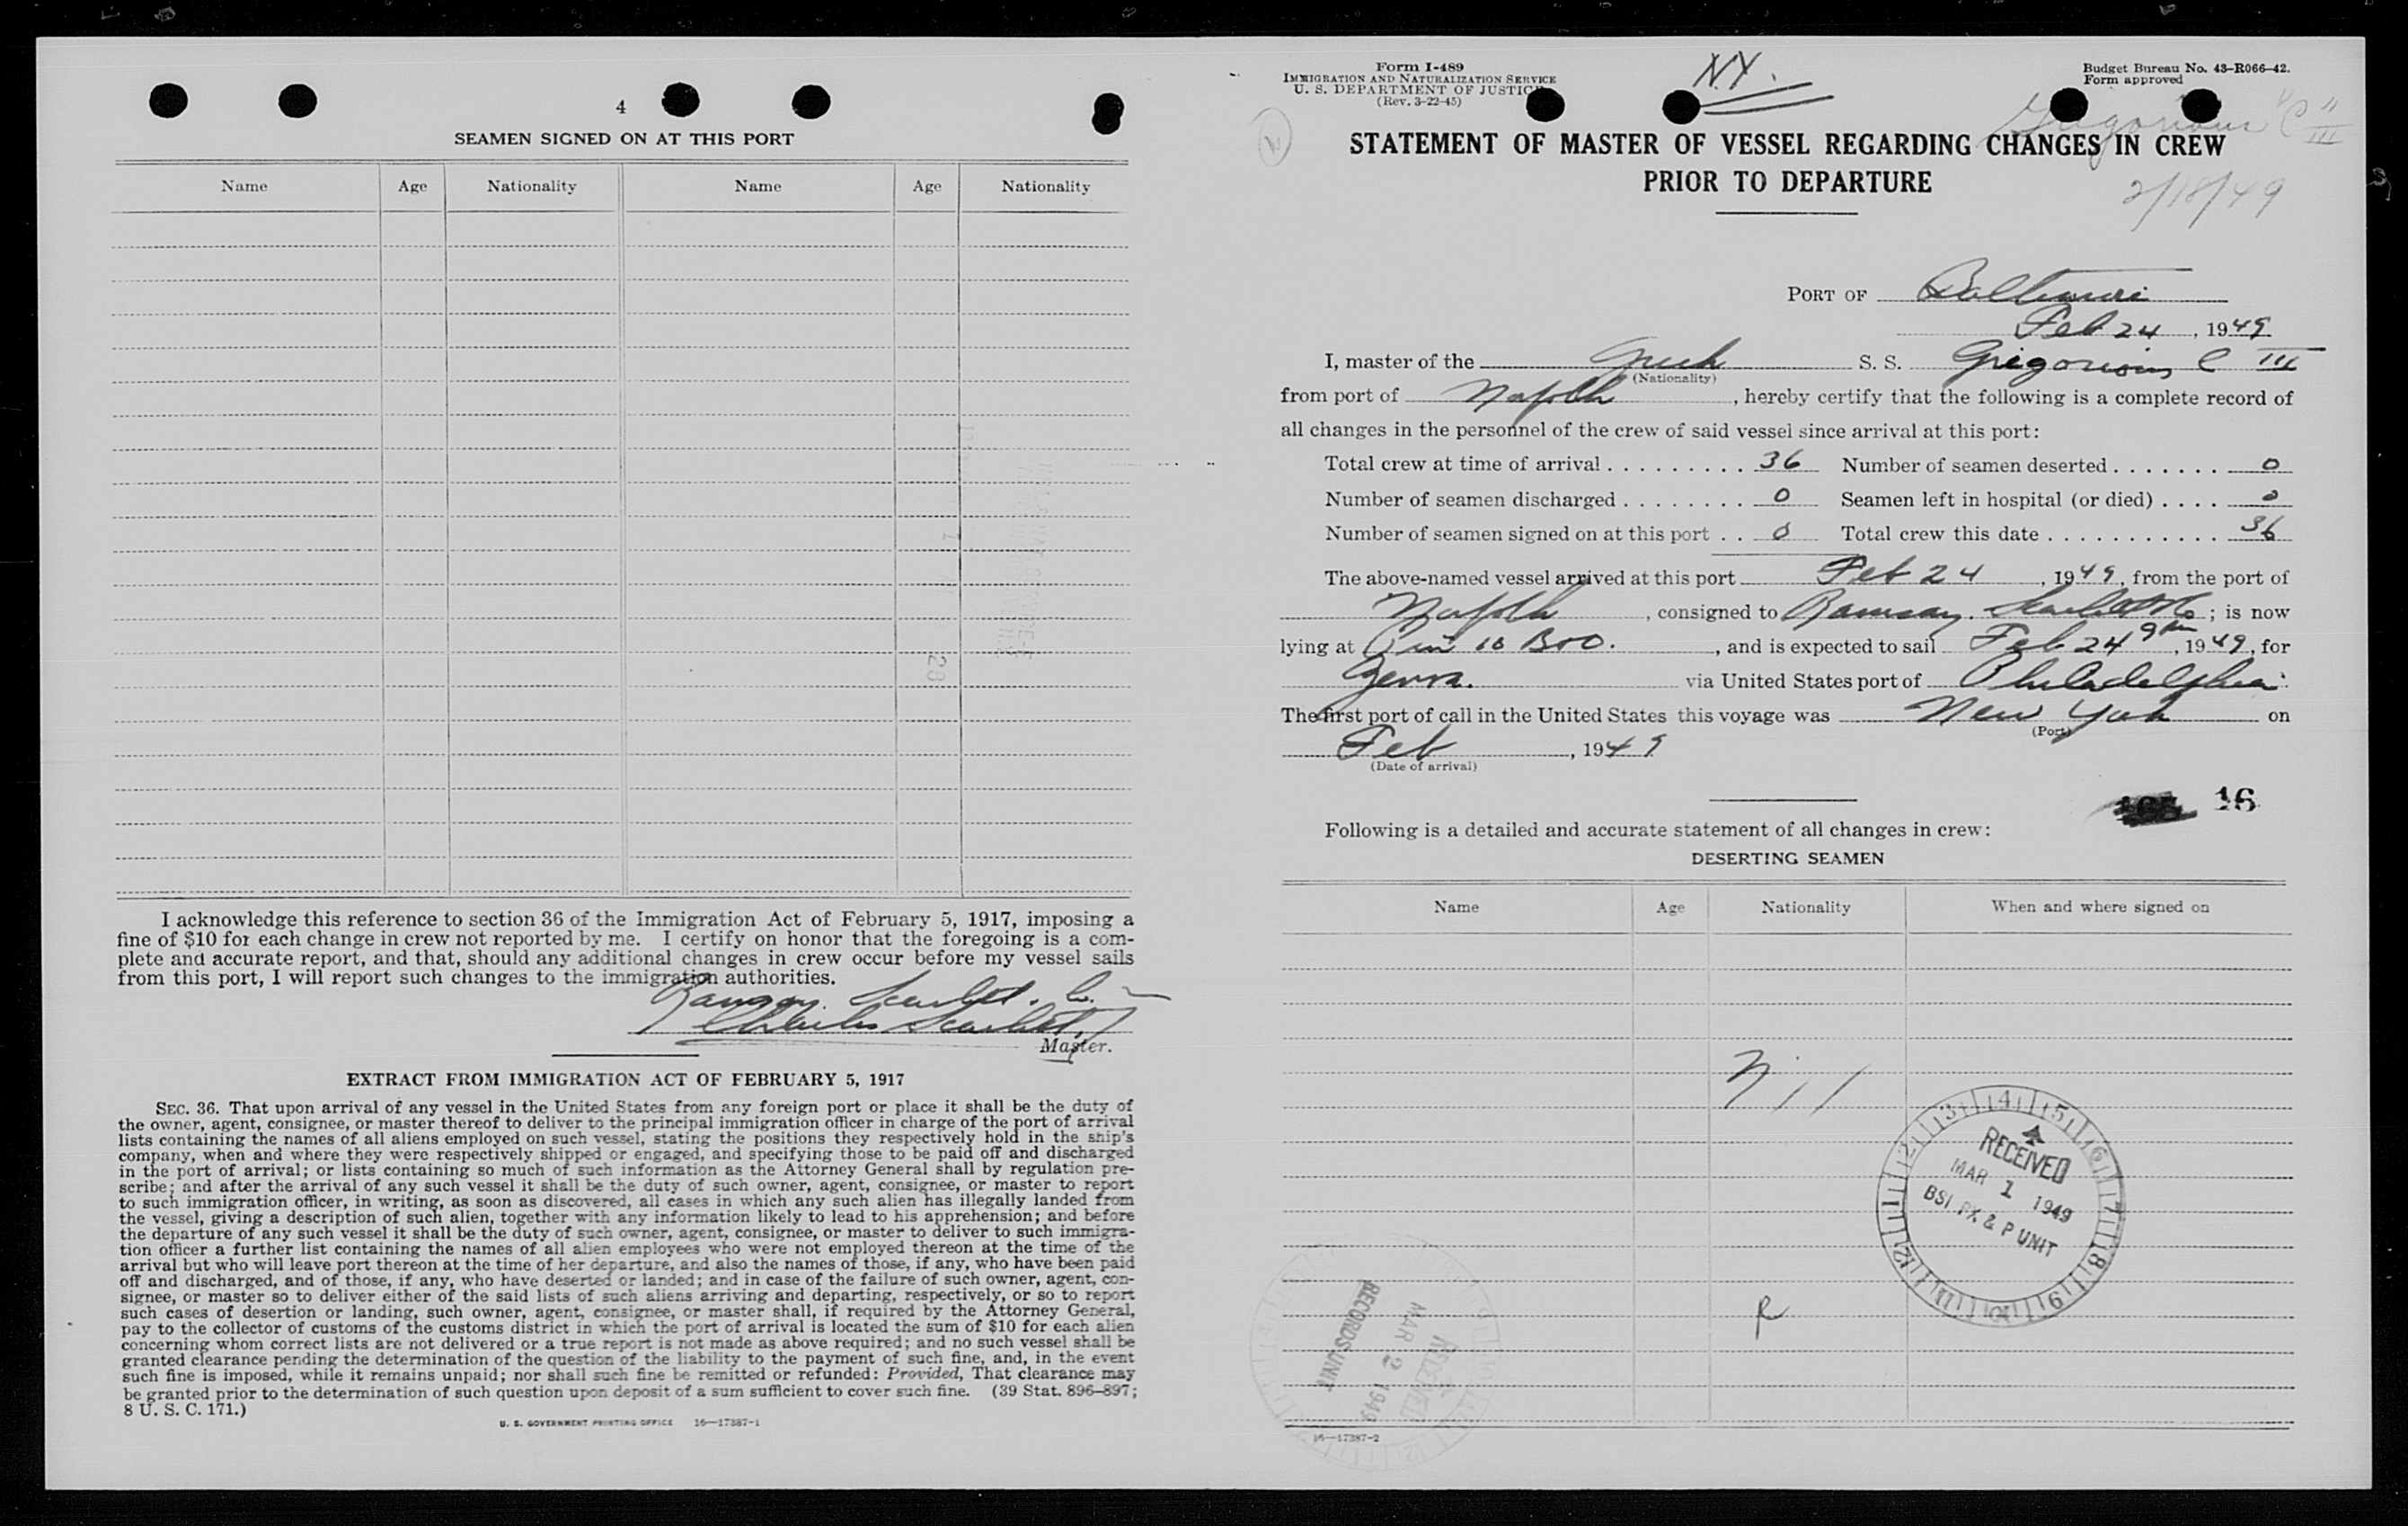 4
SEAMEN SIGNED ON AT THIS PORT
Name Age Nationality Name Age Nationality
I acknowledge this reference to section 36 of the Immigration Act of February 5, 1917, imposing a
fine of $10 for each change in crew not reported by me. I certify on honor that the foregoing is a com-
plete and accurate report, and that, should any additional changes in crew occur before my vessel sails
from this port, I will report such changes to the immigration authorities.
Ramsay. Scarlett. Co.
Charles Scarlett
Master.
EXTRACT FROM IMMIGRATION ACT OF FEBRUARY 5, 1917
SEC. 36. That upon arrival of any vessel in the United States from any foreign port or place it shall be the duty of
the owner, agent, consignee, or master thereof to deliver to the principal immigration officer in charge of the port of arrival
lists containing the names of all aliens employed on such vessel, stating the positions they respectively hold in the ship's
company, when and where they were respectively shipped or engaged, and specifying those to be paid off and discharged
in the port of arrival; or lists containing so much of such information as the Attorney General shall by regulation pre-
scribe; and after the arrival of any such vessel it shall be the duty of such owner, agent, consignee, or master to report
to such immigration officer, in writing, as soon as discovered, all cases in which any such alien has illegally landed from
the vessel, giving a description of such alien, together with any information likely to lead to his apprehension; and before
the departure of any such vessel it shall be the duty of such owner, agent, consignee, or master to deliver to such immigra-
tion officer a further list containing the names of all alien employees who were not employed thereon at the time of the
arrival but who will leave port thereon at the time of her departure, and also the names of those, if any, who have been paid
off and discharged, and of those, if any, who have deserted or landed; and in case of the failure of such owner, agent, con-
signee, or master so to deliver either of the said lists of such aliens arriving and departing, respectively, or so to report
such cases of desertion or landing, such owner, agent, consignee, or master shall, if required by the Attorney General,
pay to the collector of customs of the customs district in which the port of arrival is located the sum of $10 for each alien
concerning whom correct lists are not delivered or a true report is not made as above required; and no such vessel shall be
granted clearance pending the determination of the question of the liability to the payment of such fine, and, in the event
such fine is imposed, while it remains unpaid; nor shall such fine be remitted or refunded: Provided, That clearance may
be granted prior to the determination of such question upon deposit of a sum sufficient to cover such fine. (39 Stat. 896–897;
8 U. S. C. 171.)
U. S. GOVERNMENT PRINTING OFFICE 16—17387-1
Form I-489
IMMIGRATION AND NATURALIZATION SERVICE
U. S. DEPARTMENT OF JUSTICE
(Rev. 3-22-45)
N.Y.
Budget Bureau No. 43-R066-42.
Form approved
Grigorious "C" III
STATEMENT OF MASTER OF VESSEL REGARDING CHANGES IN CREW
PRIOR TO DEPARTURE
2/18/49
PORT OF Baltimore
Feb 24, 1949
I, master of the Greek S. S. Grigorious C III
(Nationality)
from port of Norfolk, hereby certify that the following is a complete record of
all changes in the personnel of the crew of said vessel since arrival at this port:
Total crew at time of arrival 36 Number of seamen deserted 0
Number of seamen discharged 0 Seamen left in hospital (or died) 0
Number of seamen signed on at this port 0 Total crew this date 36
The above-named vessel arrived at this port Feb 24, 1949, from the port of
Norfolk, consigned to Ramsay. Scarlett Co; is now
lying at Pier 10 B&O., and is expected to sail Feb 24 9 PM, 1949, for
Genoa. via United States port of Philadelphia
The first port of call in the United States this voyage was New York on
(Port)
Feb, 1949
(Date of arrival)
16
Following is a detailed and accurate statement of all changes in crew:
DESERTING SEAMEN
Name Age Nationality When and where signed on
Nil
RECEIVED
MAR 1 1949
BSI. PX & P UNIT
R
RECEIVED
MAR 2 1949
RECORDS UNIT
16—17387-2